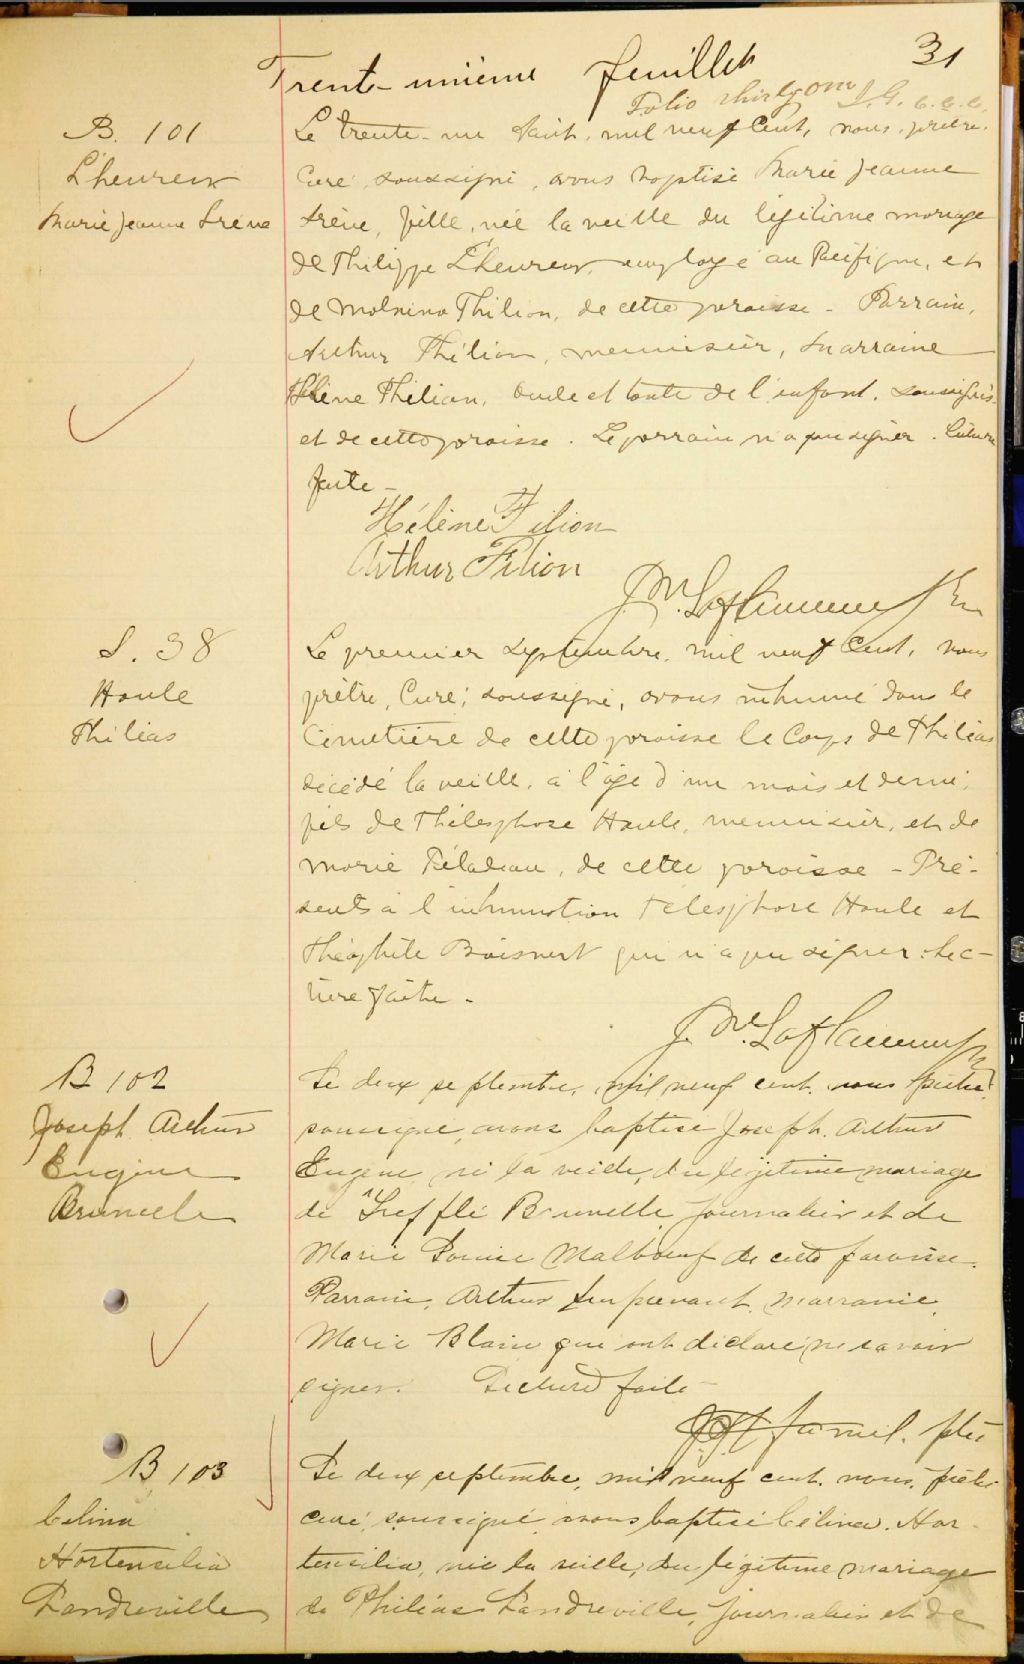 31
Trente-unième feuillet
Folio thirty one J.G. c.c.c.
B. 101
L'heureux
Marie Jeanne Irène
Le trente-un Août, mil neuf Cent, nous, prêtre,
Curé soussigné, avons baptisé Marie Jeanne
Irène, fille, née la veille du légitime mariage
de Philippe L'heureux, employé au Pacifique, et
de Malvina Thilion, de cette paroisse - Parrain,
Arthur Thélion, menuisier, marraine
Hélène Thilion, oncle et tante de l'enfant, soussignés
et de cette paroisse. Le parrain n'a pu signer. Lecture
faite -
Hélène Filion
Arthur Filion
J. M. Laflamme Ptr
S. 38
Houle
Thilias
Le premier Septembre, mil neuf Cent, nous
prêtre, Curé, soussigné, avons inhumé dans le
Cimetière de cette paroisse le Corps de Thilias
décédé la veille, à l'âge d'un mois et demi,
fils de Thélesphore Houle, menuisier, et de
Marie Féladeau, de cette paroisse - Pré-
sents à l'inhumation Télesphore Houle et
Théophile Boisvert qui n'a pu signer. Lec-
ture faite -
J. M. Laflamme Ptr
B 102
Joseph Arthur
Eugène
Brunelle
Le deux septembre, mil neuf cent, nous prêtre
soussigné, avons baptisé Joseph Arthur
Eugène, né la veille, du légitime mariage
de Trefflé Brunelle, journalier et de
Marie Louise Malboeuf de cette paroisse.
Parrain, Arthur marraine,
Marie Blain qui ont déclaré ne savoir
signer. Lecture faite -
ptre
B 103
Célina
Hortensilia
Landreville
Le deux septembre, mil neuf cent, nous, prêtre
curé, soussigné avons baptisé Célina. Hor-
tensilia, née la veille, du légitime mariage
de Philias Landreville, journalier et de